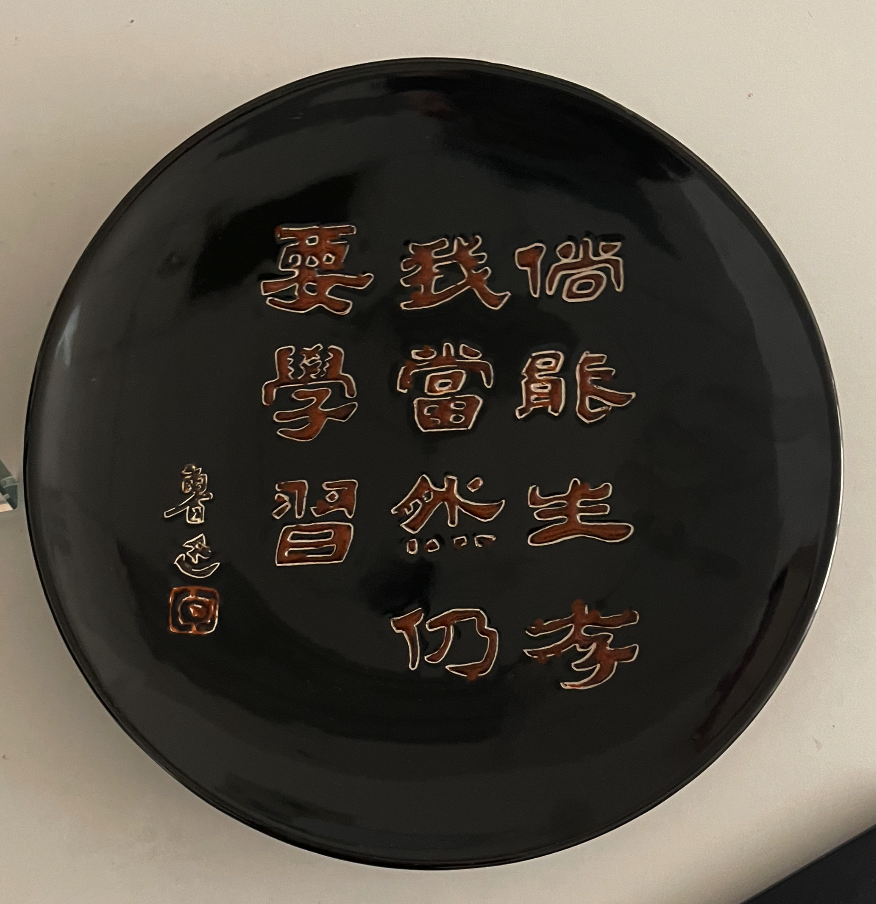 倘能生存
我當然仍
要學習
魯迅